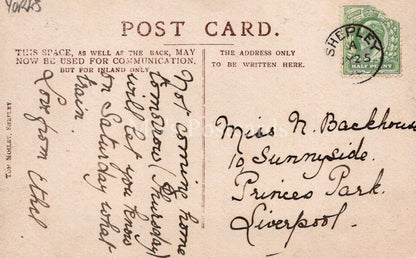 YORKS
POST CARD.
THIS SPACE, AS WELL AS THE BACK, MAY
NOW BE USED FOR COMMUNICATION,
BUT FOR INLAND ONLY.
THE ADDRESS ONLY
TO BE WRITTEN HERE.
HALF PENNY
SHEPLEY
A
25
TOM MORLEY, SHEPLEY
Not coming home
tomorrow (Thursday)
will let you know
on Saturday what
train.
Love from Ethel
Miss N. Backhouse
10 Sunnyside.
Princes Park.
Liverpool.